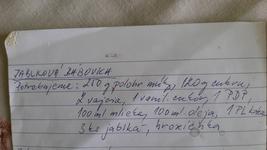 JABLKOVÁ BÁBOVKA
Potrebujeme: 250 g polohr. múky, 120g cukru,
2 vajcia, 1 vanil. cukor, 1 PDP,
100 ml mlieka, 100 ml oleja, 1 PL kakaa
3 ks jabĺká, hrozienka